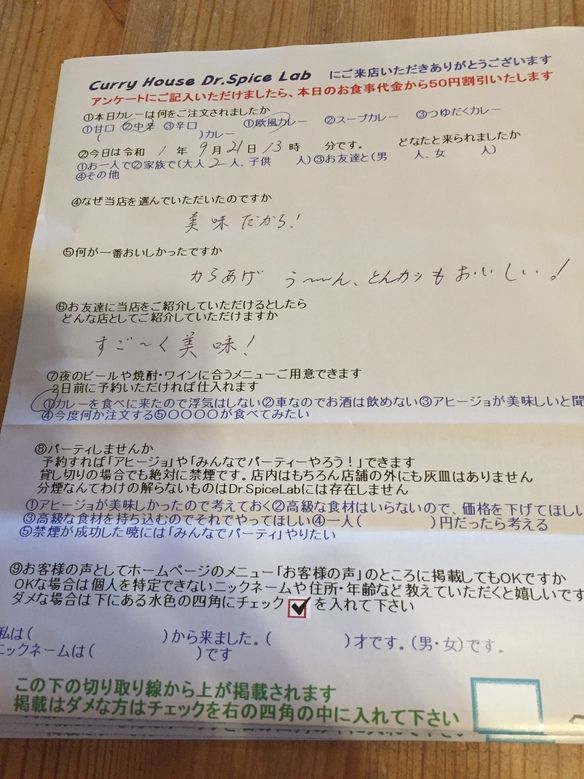 Curry House Dr.Spice Lab にご来店いただきありがとうございます
アンケートにご記入いただけましたら、本日のお食事代金から50円割引いたします
①本日カレーは何をご注文されましたか
①甘口 ②中辛 ③辛口 ①欧風カレー ②スープカレー ③つゆだくカレー
( )カレー
②今日は令和 1 年 9月 21日 13 時 分です。 どなたと来られましたか
①お一人で②家族で(大人 2 人、子供 人)③お友達と(男 人、女 人)
④その他
④なぜ当店を選んでいただいたのですか
美味だから!
⑤何が一番おいしかったですか
からあげ う〜ん、とんカツもおいしい!
⑥お友達に当店をご紹介していただけるとしたら
どんな店としてご紹介していただけますか
すご〜く美味!
⑦夜のビールや焼酎・ワインに合うメニューご用意できます
2日前に予約いただければ仕入れます
①カレーを食べに来たので浮気はしない②車なのでお酒は飲めない③アヒージョが美味しいと聞
④今度何か注文する⑤〇〇〇〇が食べてみたい
⑧パーティしませんか
予約すれば「アヒージョ」や「みんなでパーティーやろう!」できます
貸し切りの場合でも絶対に禁煙です。店内はもちろん店舗の外にも灰皿はありません
分煙なんてわけの解らないものはDr.SpiceLabには存在しません
①アヒージョが美味しかったので考えておく②高級な食材はいらないので、価格を下げてほしい
③高級な食材を持ち込むのでそれでやってほしい④一人( )円だったら考える
⑤禁煙が成功した暁には「みんなでパーティ」やりたい
⑨お客様の声としてホームページのメニュー「お客様の声」のところに掲載してもOKですか
OKな場合は個人を特定できないニックネームや住所・年齢など教えていただくと嬉しいです
ダメな場合は下にある水色の四角にチェック を入れて下さい
私は( )から来ました。( )才です。(男・女)です。
ニックネームは( )です
この下の切り取り線から上が掲載されます
掲載はダメな方はチェックを右の四角の中に入れて下さい